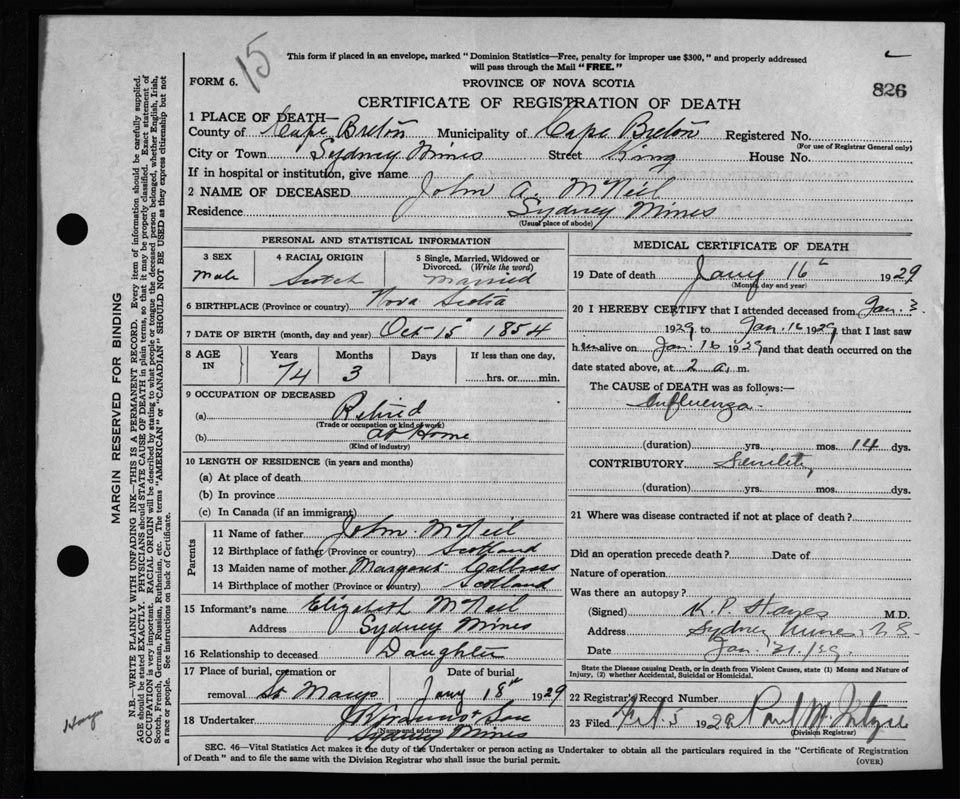 15
This form if placed in an envelope, marked "Dominion Statistics—Free, penalty for improper use $300," and properly addressed
will pass through the Mail "FREE."
FORM 6.
PROVINCE OF NOVA SCOTIA
826
CERTIFICATE OF REGISTRATION OF DEATH
1 PLACE OF DEATH—
County of Cape Breton Municipality of Cape Breton Registered No.
(For use of Registrar General only)
City or Town Sydney Mines Street King House No.
If in hospital or institution, give name
2 NAME OF DECEASED John A. McNeil
Residence Sydney Mines
(Usual place of abode)
PERSONAL AND STATISTICAL INFORMATION
3 SEX 4 RACIAL ORIGIN 5 Single, Married, Widowed or
Divorced. (Write the word)
Male Scotch Married
6 BIRTHPLACE (Province or country) Nova Scotia
7 DATE OF BIRTH (month, day and year) Oct 15 1854
8 AGE IN Years Months Days If less than one day,
74 3 hrs. or min.
9 OCCUPATION OF DECEASED
(a) Retired
(Trade or occupation or kind of work)
(b) at Home
(Kind of industry)
10 LENGTH OF RESIDENCE (in years and months)
(a) At place of death
(b) In province
(c) In Canada (if an immigrant)
Parents
11 Name of father John McNeil
12 Birthplace of father (Province or country) Scotland
13 Maiden name of mother Margaret
14 Birthplace of mother (Province or country) Scotland
15 Informant's name Elizabeth McNeil
Address Sydney Mines
16 Relationship to deceased Daughter
17 Place of burial, cremation or Date of burial
removal St Marys Jany 18th 1929
18 Undertaker & Son
(Name and address)
Sydney Mines
MEDICAL CERTIFICATE OF DEATH
19 Date of death Jany 16 1929
(Month, day and year)
20 I HEREBY CERTIFY that I attended deceased from Jan. 3
1929, to Jan. 16 1929, that I last saw
him alive on Jan. 16 1929 and that death occurred on the
date stated above, at 2 a. m.
The CAUSE of DEATH was as follows:—
Influenza
(duration) yrs. mos. 14 dys.
CONTRIBUTORY Senility
(duration) yrs. mos. dys.
21 Where was disease contracted if not at place of death?
Did an operation precede death? Date of
Nature of operation
Was there an autopsy?
(Signed) K. P. Hayes M.D.
Address Sydney Mines, N.S.
Date Jan. 21/29.
State the Disease causing Death, or in death from Violent Causes, state (1) Means and Nature of
Injury, (2) whether Accidental, Suicidal or Homicidal.
22 Registrar's Record Number
23 Filed Feb. 3 1929 Paul
(Division Registrar)
SEC. 46—Vital Statistics Act makes it the duty of the Undertaker or person acting as Undertaker to obtain all the particulars required in the "Certificate of Registration
of Death" and to file the same with the Division Registrar who shall issue the burial permit.
(OVER)
MARGIN RESERVED FOR BINDING
N.B.—WRITE PLAINLY WITH UNFADING INK—THIS IS A PERMANENT RECORD. Every item of information should be carefully supplied.
AGE should be stated EXACTLY. PHYSICIANS should STATE CAUSE OF DEATH in plain terms, so that it may be properly classified. Exact statement of
OCCUPATION is very important. RACIAL ORIGIN will be described by stating to what people or tongue the deceased person belonged, whether English, Irish,
Scotch, French, German, Russian, Ruthenian, etc. The terms "AMERICAN" or "CANADIAN" SHOULD NOT BE USED as they express citizenship but not
a race or people. See instructions on back of Certificate.